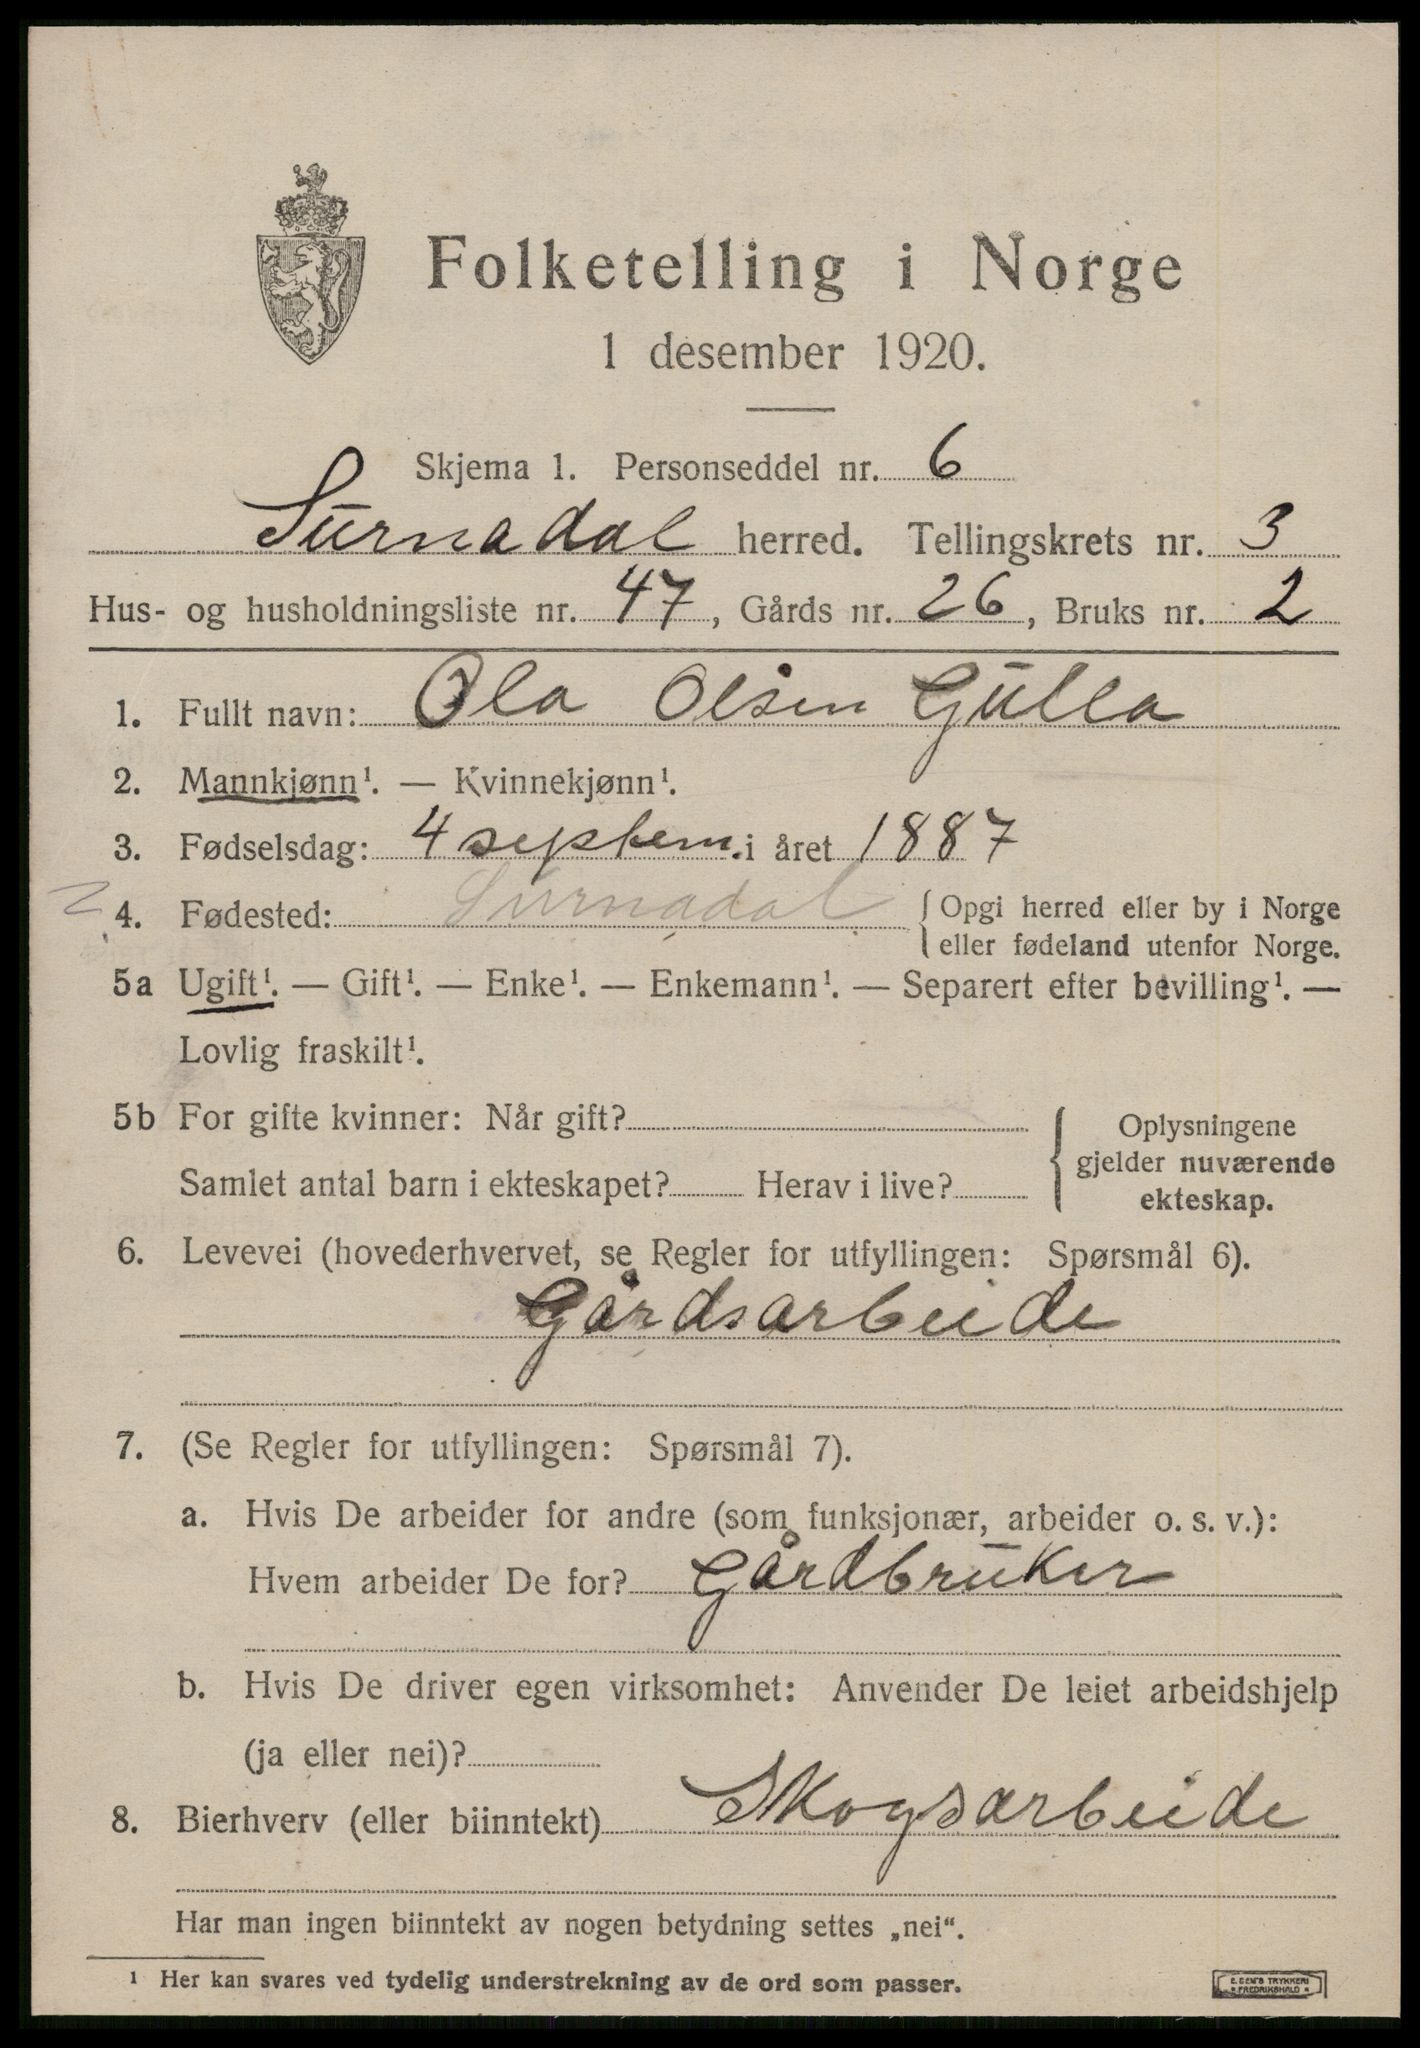 Folketelling i Norge
1 desember 1920.
Skjema 1. Personseddel nr. 6
Surnadal herred. Tellingskrets nr. 3
Hus- og husholdningsliste nr. 47, Gårds nr. 26, Bruks nr. 2
1. Fullt navn: Ola Olsen Gulla
2. Mannkjønn¹. — Kvinnekjønn¹.
3. Fødselsdag: 4 septem. i året 1887
4. Fødested: Surnadal { Opgi herred eller by i Norge
eller fødeland utenfor Norge.
5a Ugift¹. — Gift¹. — Enke¹. — Enkemann¹. — Separert efter bevilling¹. —
Lovlig fraskilt¹.
5b For gifte kvinner: Når gift? { Oplysningene
gjelder nuværende
Samlet antal barn i ekteskapet? Herav i live?
ekteskap.
6. Levevei (hovederhvervet, se Regler for utfyllingen: Spørsmål 6).
Gårdsarbeide
7. (Se Regler for utfyllingen: Spørsmål 7).
a. Hvis De arbeider for andre (som funksjonær, arbeider o. s. v.):
Hvem arbeider De for? Gårdbruker
b. Hvis De driver egen virksomhet: Anvender De leiet arbeidshjelp
(ja eller nei)?
8. Bierhverv (eller biinntekt) Skogsarbeide
Har man ingen biinntekt av nogen betydning settes „nei“.
1 Her kan svares ved tydelig understrekning av de ord som passer.
E. SEM'S TRYKKERI
* FREDRIKSHALD *